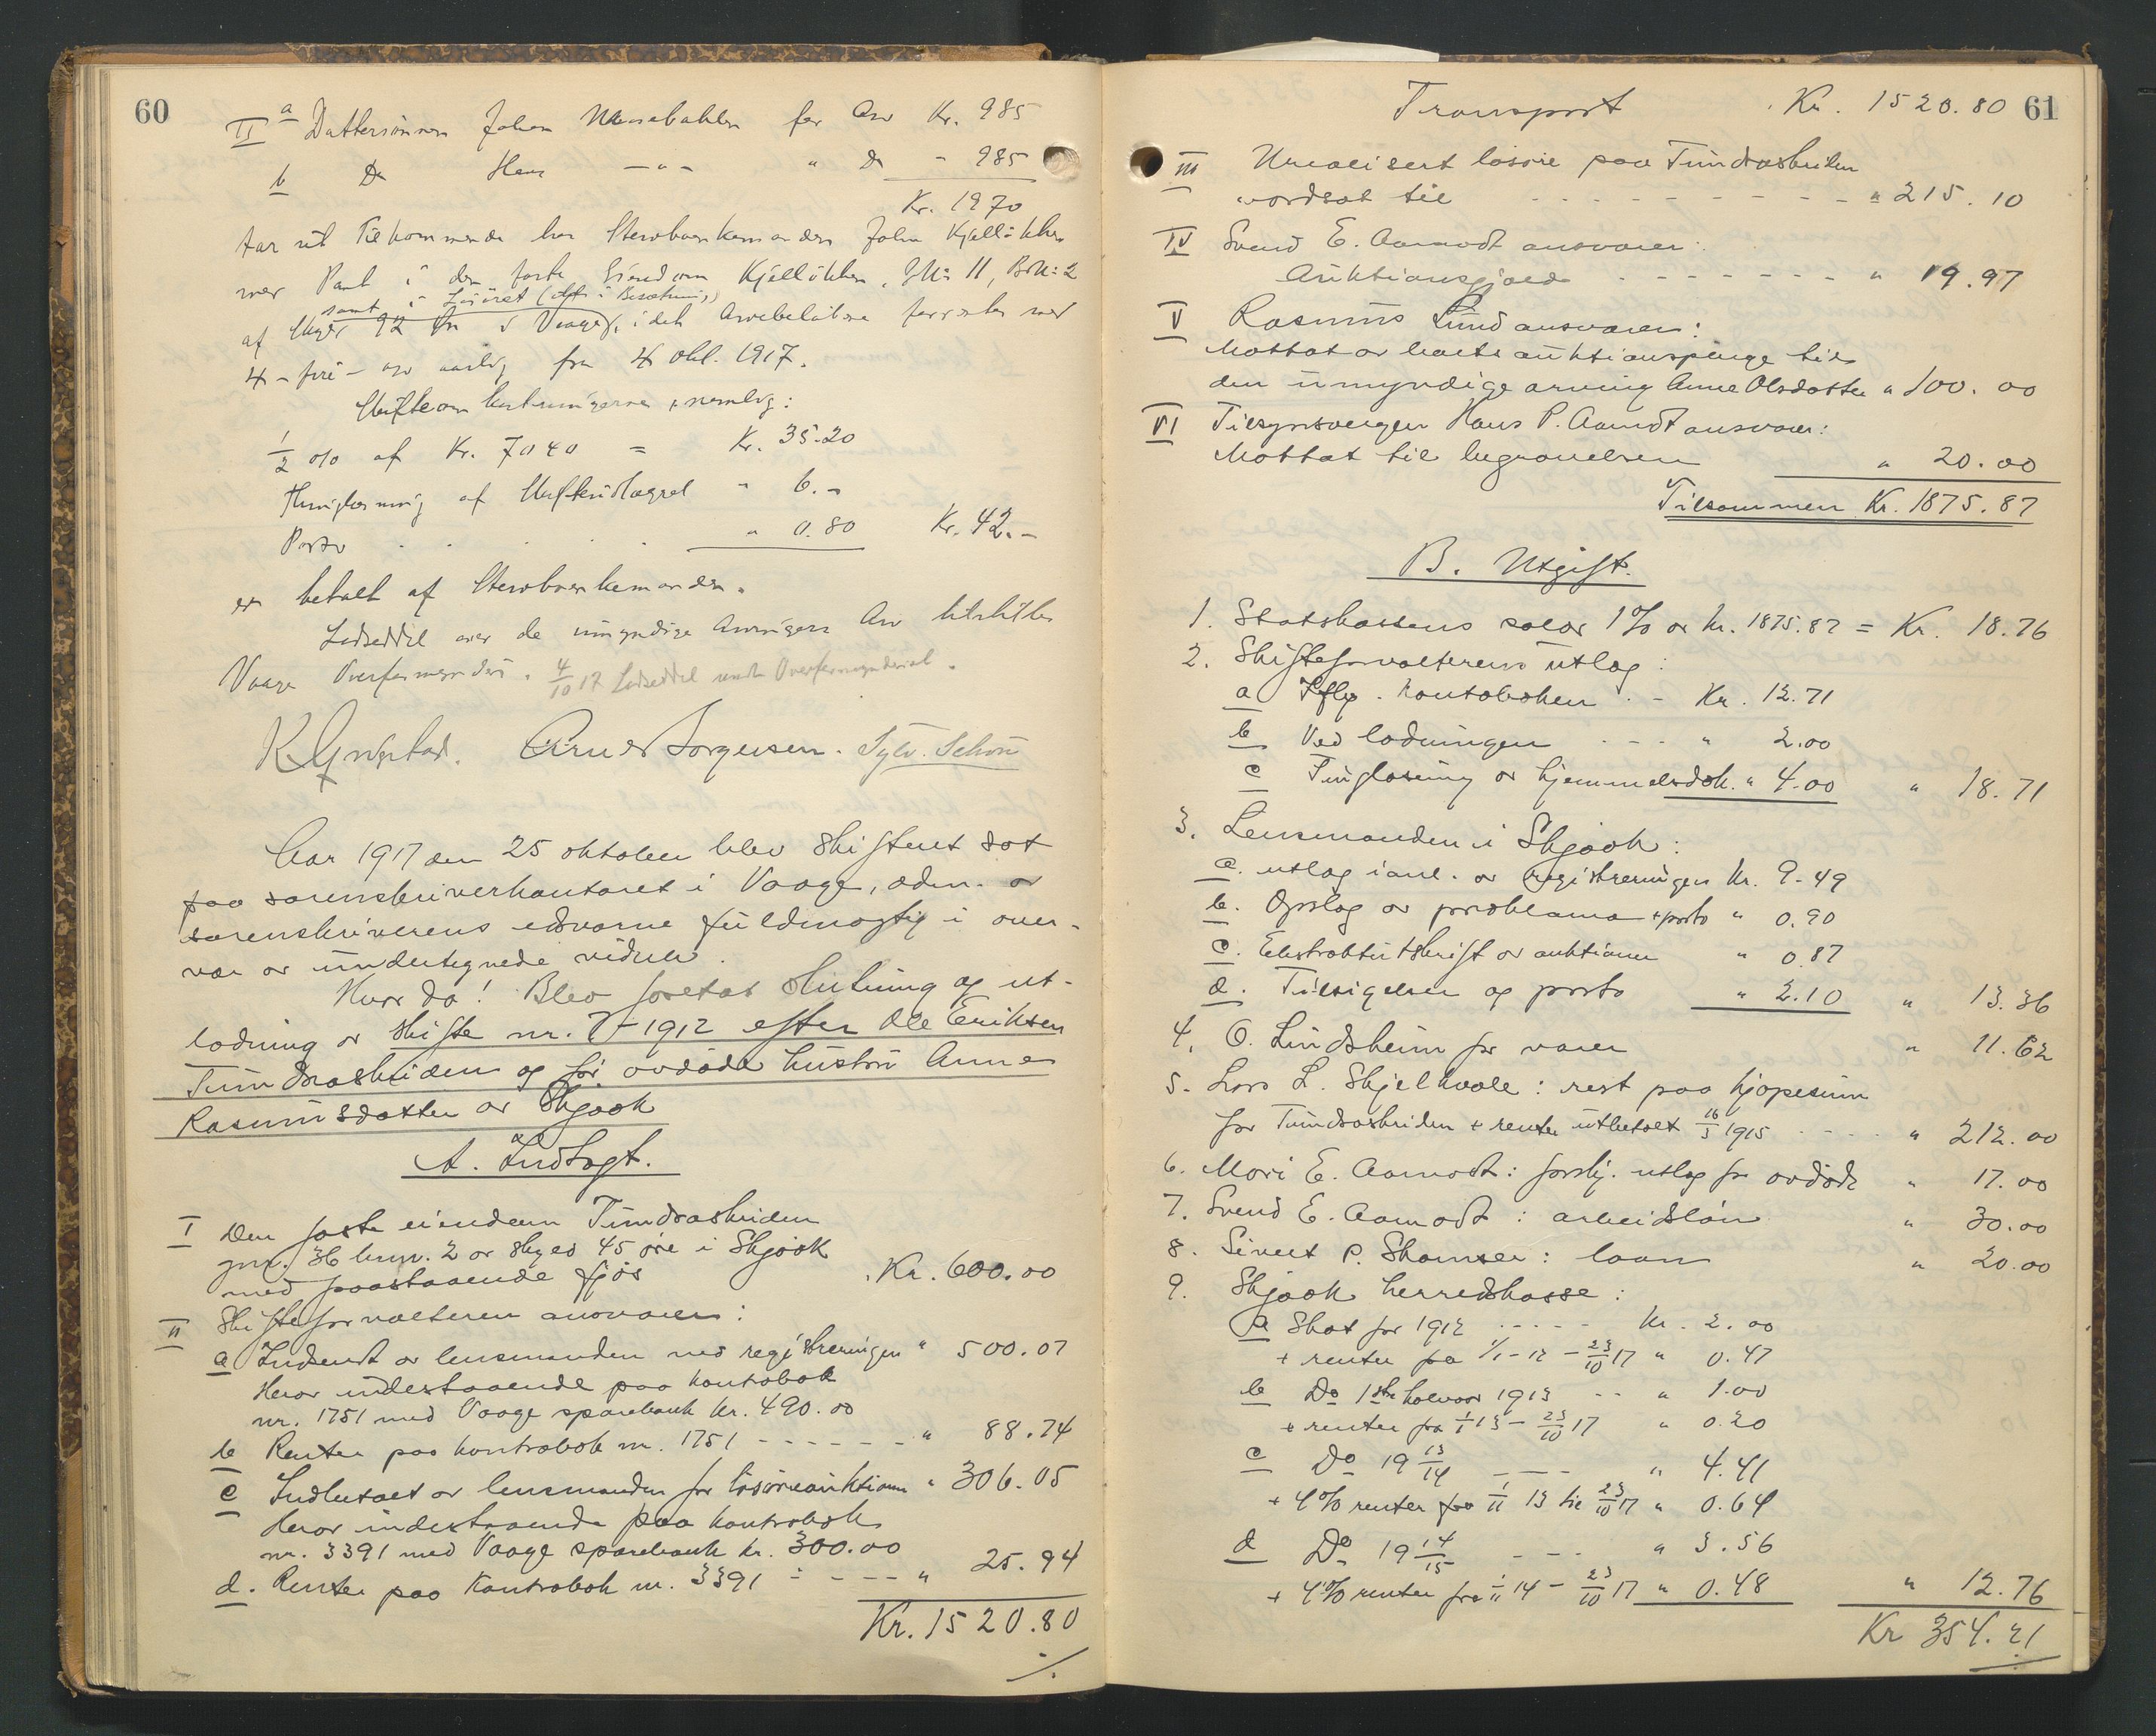 60
II a Dattersönnen Johan for Arv Kr. 985
b Do Hans — " — " Do - 985
Kr. 1970
for sit Tilkommende har Stervboenkemanden Johan Kjellökken
mer Pant i den faste Eiendom Kjellökken, Gn: 11, Bn: 2
samt i Lösöret (ikke i Besætning)
af Skyld 92 öre i Vaage, idet Arvebelöbene forrentes med
4 - fire - o/o aarlig fra 4 okt. 1917.
Skifteomkostningerne, nemlig:
1/2 o/o af Kr. 7040 = Kr. 35.20
Thinglæsning af Skifteudlægget " 6.-
Porto . . . . . " 0.80 Kr. 42.-
er betalt af Stervboenkemanden.
Lodseddel over de umyndige Arvingers Arv tilstilles
Vaage Overformynderi. 4/10 17 Lodseddel sendt Overformynderiet.
Arne Jørgensen. Sylv. Schou
Aar 1917 den 25 oktober blev skifteret sat
paa sorenskriverkontoret i Vaage, adm. av
sorenskriverens edsvorne fuldmægtig i over-
vær av undertegnede vidner.
Hvor da! Blev foretat slutning og ut-
lodning av skifte nr. 7-1912 efter Ole Eriksen
Tundraskriden og før avdøde hustru Anne
Rasmusdatter av Skjaak
A. Indtægt.
I Den faste eiendom Tundraskriden
gnr. 36 brnr. 2 av skyld 45 øre i Skjaak
med paastaaende fjøs . Kr. 600.00
II Skifteforvalteren ansvarer:
a Indsendt av lensmanden med registreringen " 500.07
Herav indestaaende paa kontrabok
nr. 1751 med Vaage sparebank kr. 490.00
b Renter paa kontrabok nr. 1751 - - - - - - " 88.74
c Indbetalt av lensmanden for løsøreauktionen " 306.05
Herav indestaaende paa kontrabok
nr. 3391 med Vaage sparebank kr. 300.00
d. Renter paa Kontrabok nr. 3391 - - - - - " 25.94
Kr. 1520.80
./.
61
Transport . Kr. 1520.80
III Urealisert løsøre paa Tundraskriden
værdsat til - - - - - - - - - - " 215.10
IV Svend E. Aamodt ansvarer:
Auktionsgjæld - - - - - - - " 19.97
V Rasmus Lund ansvarer:
Mottat av auktionspenge til
den umyndige arving Anne Olsdatter " 100.00
VI Tilsynsvergen Hans P. Aamodt ansvarer:
Mottat til begravelsen " 20.00
Tilsammen Kr. 1875.87
B. Utgift.
1. Statskassens salær 1% av kr. 1875.87 = Kr. 18.76
2. Skifteforvalterens utlæg:
a Iflg. kontoboken . - Kr. 12.71
b Ved lodningen - - - " 2.00
c Tinglæsning av hjemmelsdok. " 4.00 " 18.71
3. Lensmanden i Skjaak:
a. utlæg i anl. av registreringen Kr. 9.49
b. Opslag av proklama + porto " 0.90
c. Ekstraktutskrift av auktionen " 0.87
d. Tilsigelser og porto " 2.10 " 13.36
4. O. Lindsheim for varer " 11.62
5. Lars L. Skjelkvale: rest paa kjøpesum
for Tundraskriden + renter utbetalt 16/3 1915 - - - - " 212.00
6. Mari E. Aamodt: forskj. utlæg for avdøde " 17.00
7. Svend E. Aamodt: arbeidsløn " 30.00
8. Sivert P. Skamsar: laan " 20.00
9. Skjaak herredskasse:
a Skat for 1912 - - - - - Kr. 2.00
+ renter fra 1/1-12 - 23/10 17 " 0.47
b Do 1ste halvaar 1913 - - " 1.00
+ renter fra 1/1 13 - 23/10 17 " 0.20
c Do 19 13/14 - - - " 4.41
+ 4% renter fra 1/11 13 til 23/10 17 " 0.64
d Do 19 14/15 - - - " 3.56
+ 4% renter fra 1/11 14 - 23/10 17 " 0.48 " 12.76
Kr 354.21